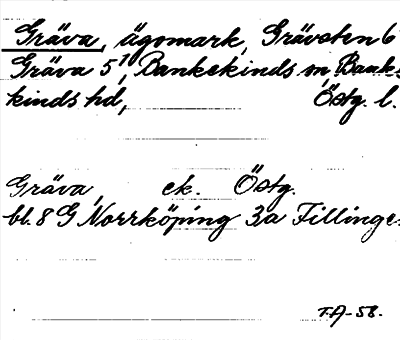 Gräva, ägomark, Grävsten 6
Gräva 5¹, Bankekinds sn, Bank-
kinds hd, Östg. l.
Gräva, ek. Östg.
bl. 8 G Norrköping 3a Fillinge
T.A-58.